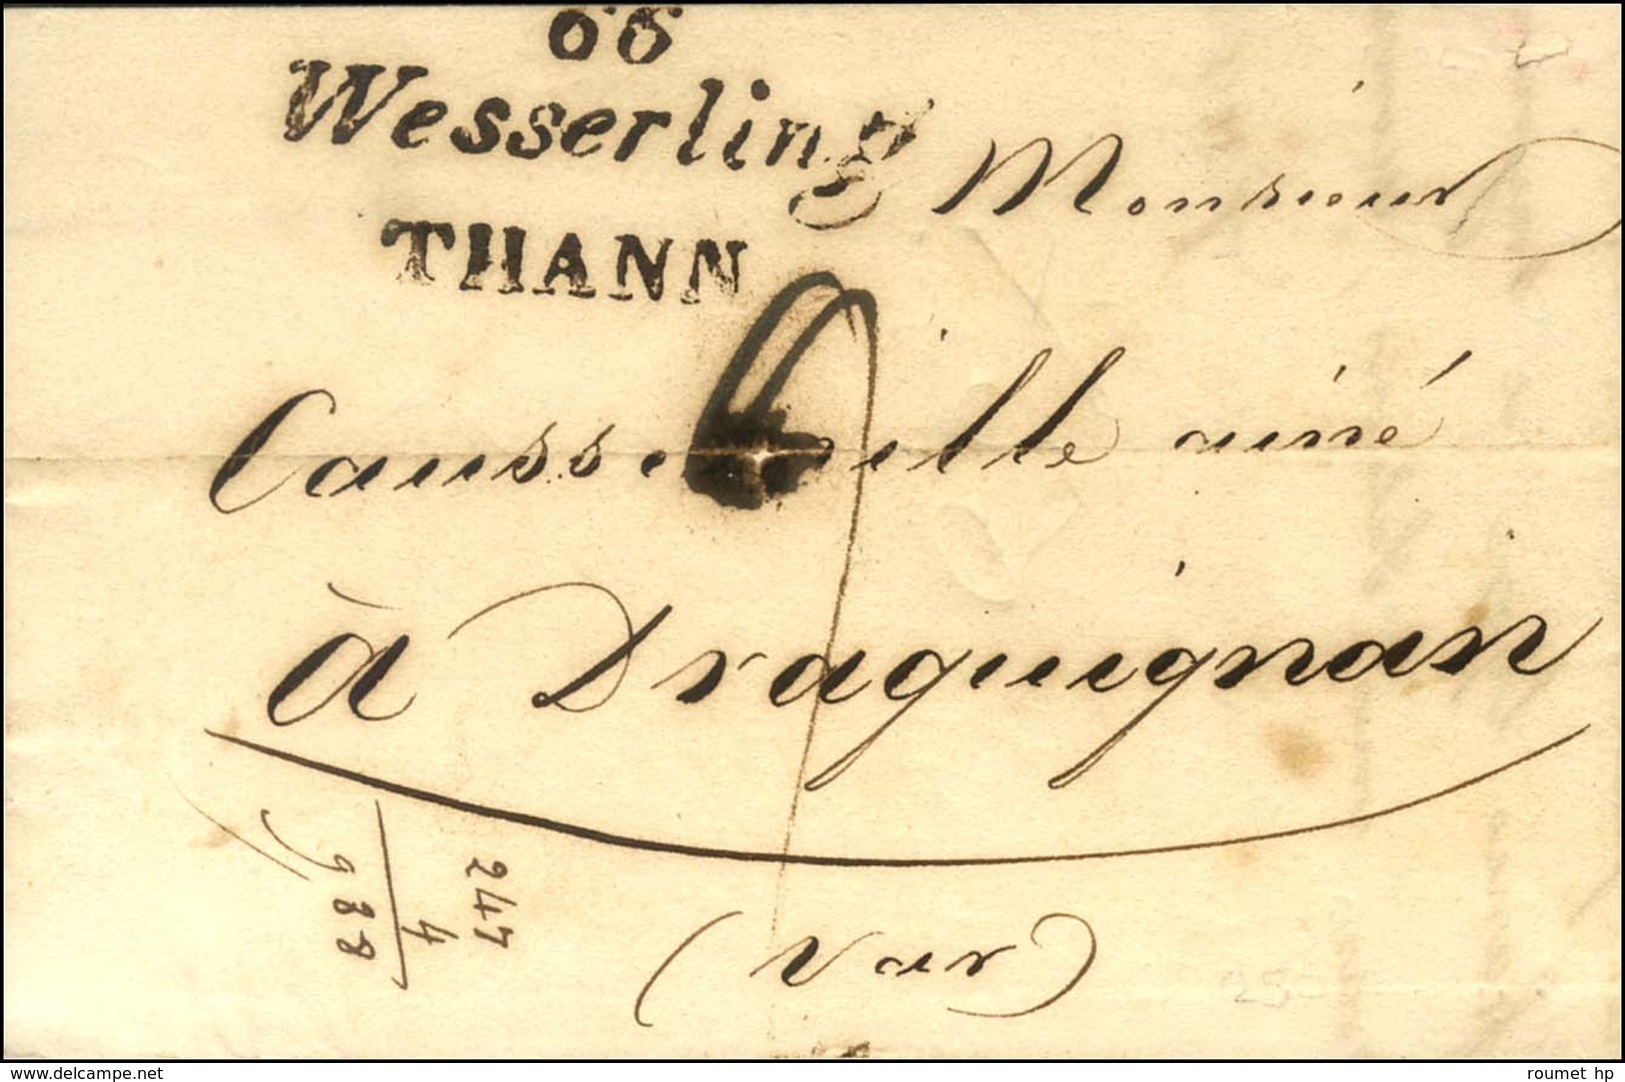 66
Wesserling
THANN
Monsieur
Causse ille ainé
à Draguignan
(Var)
247
4
988
25
www.delcampe.net
roumet hp